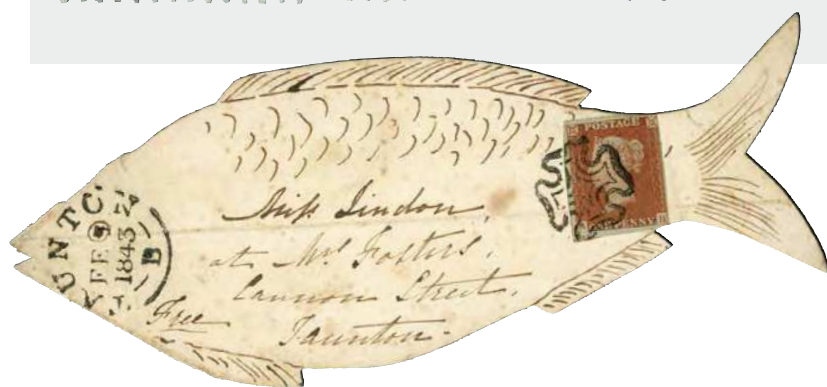 POSTAGE
ONE PENNY
UNTO
FE
1843
B
Miss Lindon,
at Mrs Fosters,
Cannon Street,
Free
Taunton.